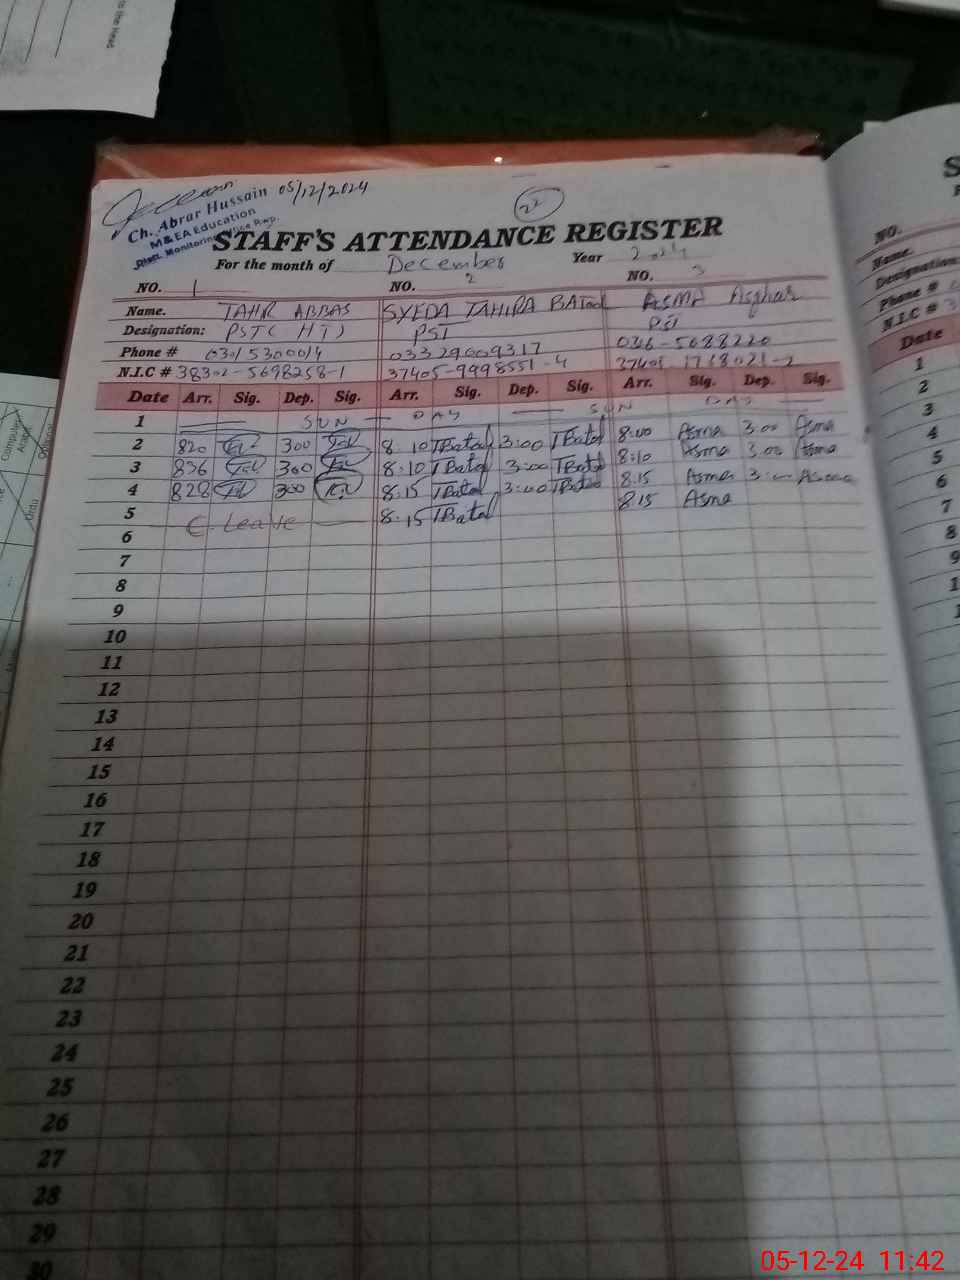 05/12/2024
Ch. Abrar Hussain
M&EA Education
22
STAFF'S ATTENDANCE REGISTER
For the month of December Year 2024
NO. 1 NO. 2 NO. 3
Name. TAHR ABBAS SYEDA TAHIRA BATool ASMA Asghar
Designation: PST( HT) PST
Phone # 03329009317 0346-5688220
N.I.C # 38302-5698258-1 37405-9998551-4
Date Arr. Sig. Dep. Sig. Arr. Sig. Dep. Sig. Arr. Sig. Dep. Sig.
1 SUN DAY SUN DAY
2 820 300 8:10 TBatol 3:00 TBatol 8:00 Asma 3:00 Asma
3 836 300 8:10 TBatol 3:00 TBatol 8:10 Asma 3:00 Asma
4 828 300 8:15 TBatol 3:00 TBatol 8:15 Asma Asma
5 C. Leave 8:15 TBatol 8:15 Asma
6
7
8
9
10
11
12
13
14
15
16
17
18
19
20
21
22
23
24
25
26
27
28
29
30
NO.
Name.
Designation:
Phone #
N.I.C #
Date
1
2
3
4
5
6
7
8
05-12-24 11:42